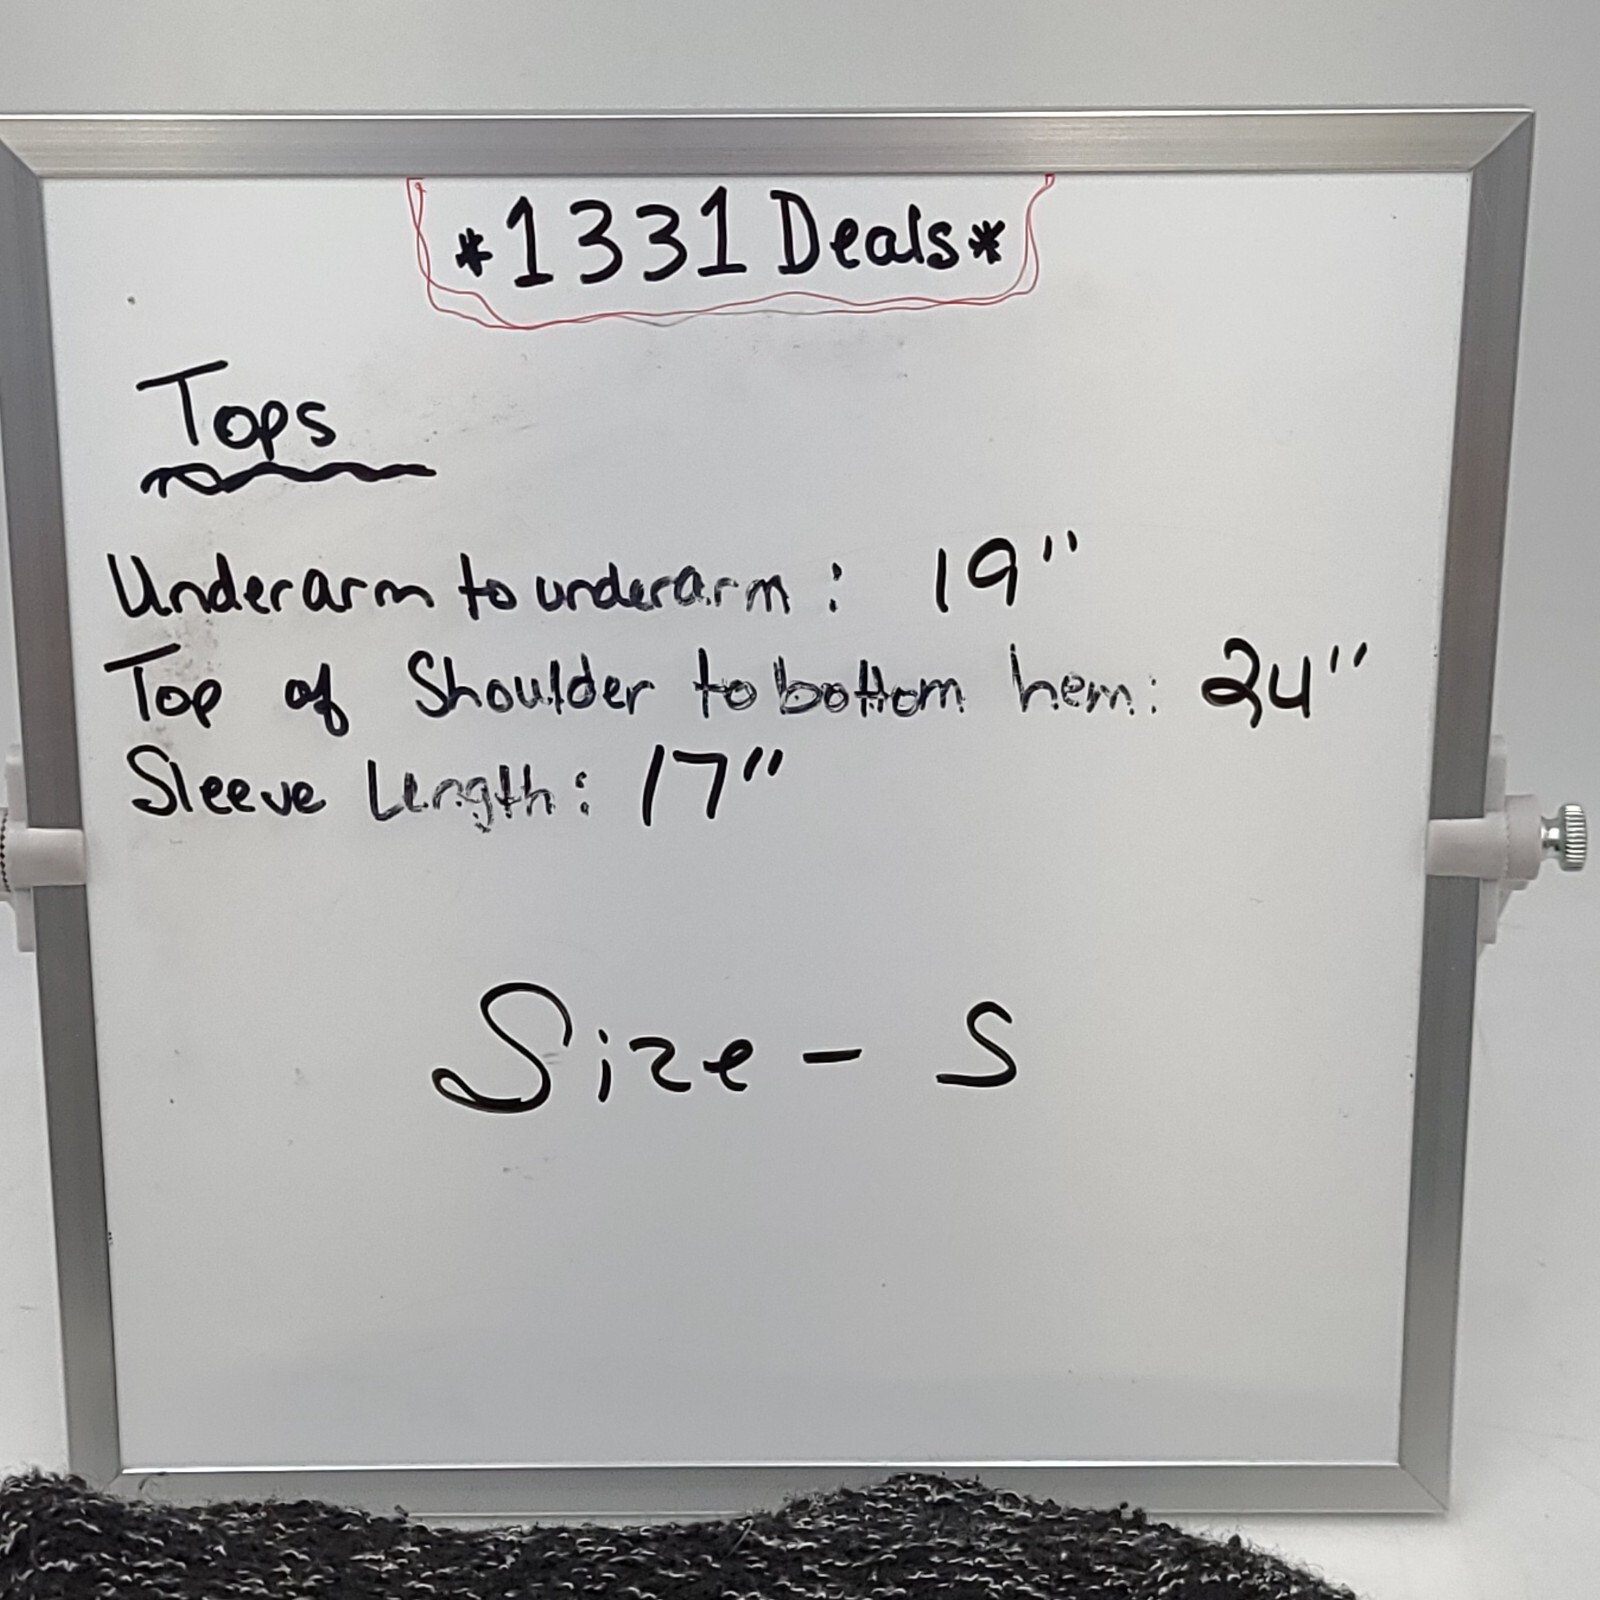 *1331 Deals*
Tops
Underarm to underarm: 19"
Top of Shoulder to bottom hem: 24"
Sleeve Length: 17"
Size - S